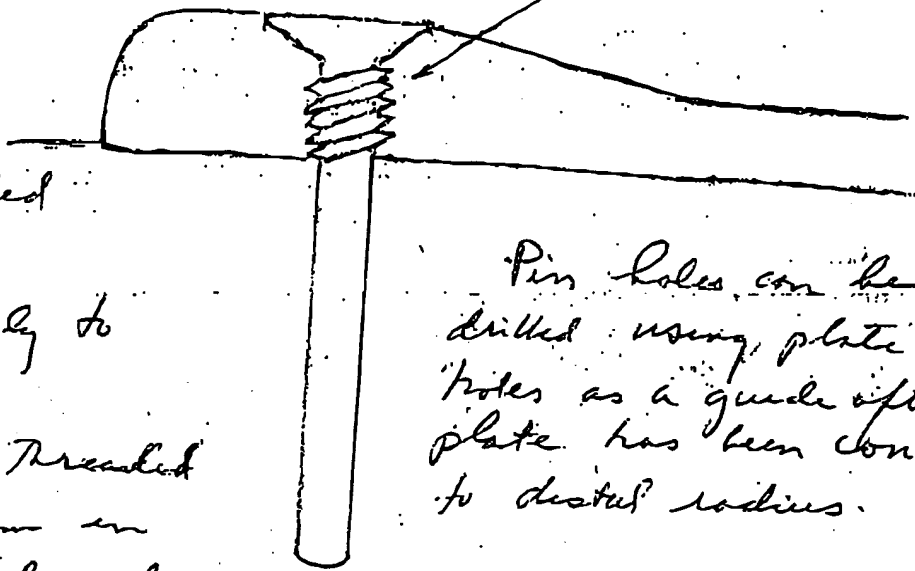 ed
ly to
Threaded
in
Pin holes can be
drilled using plate
holes as a guide aft
plate has been con
to distal radius.